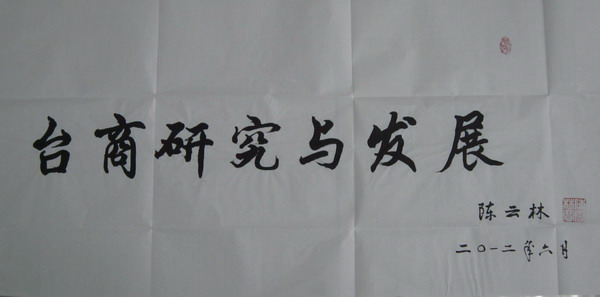 台商研究与发展
陈云林
二〇一二年六月